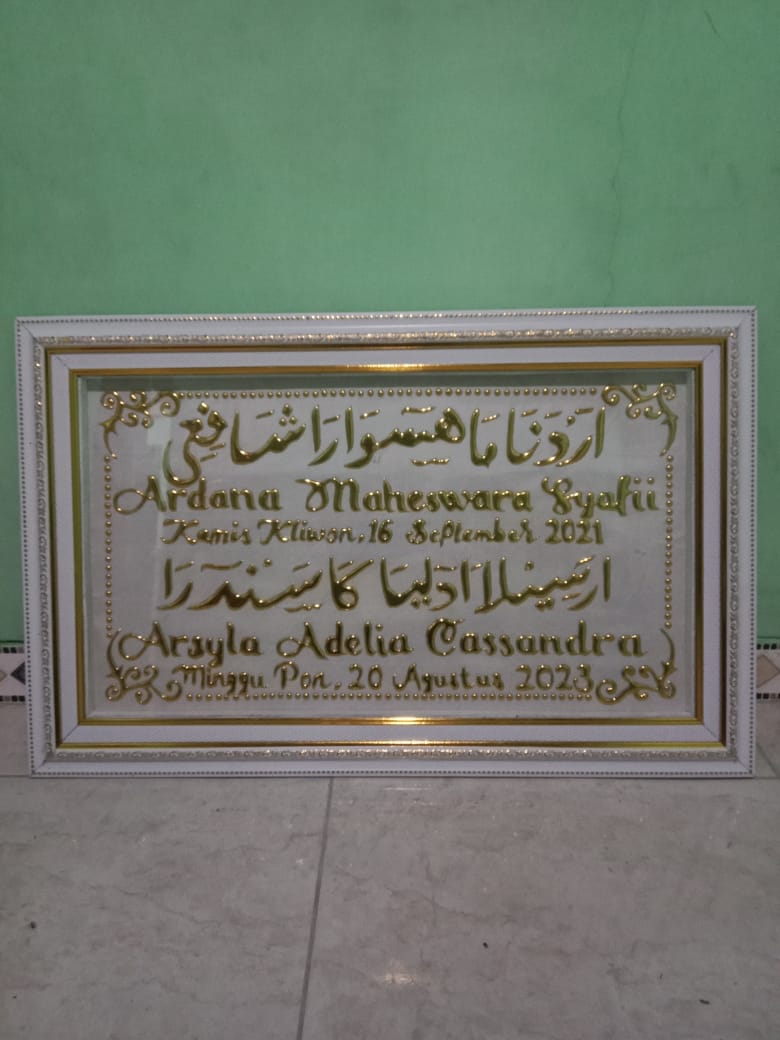 اَرْدَنَا مَا هَيْسْوَارَا شَافِعِي
Ardana Maheswara Syafii
Kamis Kliwon, 16 September 2021
ارَسِيْلَا ادَلِيَا كَاسَنْدَرَا
Arsyla Adelia Cassandra
Minggu Pon, 20 Agustus 2023